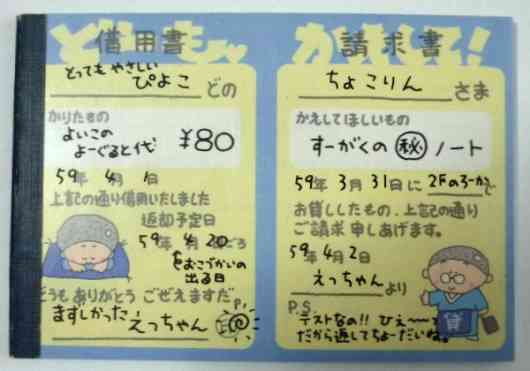 どーもォ
借用書
とっても やさしい
ぴよこ どの
かりたもの
よいこの
よーぐると代 ¥80
59年 4月 1日
上記の通り借用いたしました
返却予定日
59年 4月 20日ごろ
をおこづかいの
出る日
どうもありがとう ごぜえますだ
まずしかった えっちゃん
かえして!
請求書
ちょこりん さま
かえしてほしいもの
すーがくの ㊙ ノート
59年 3月 31日に 2Fのろーかで
お貸ししたもの、上記の通り
ご請求申しあげます。
59年 4月 2日
えっちゃん より
貸
P.S.
テストなの!! ひぇ〜〜て
だから返してちょーだいね。